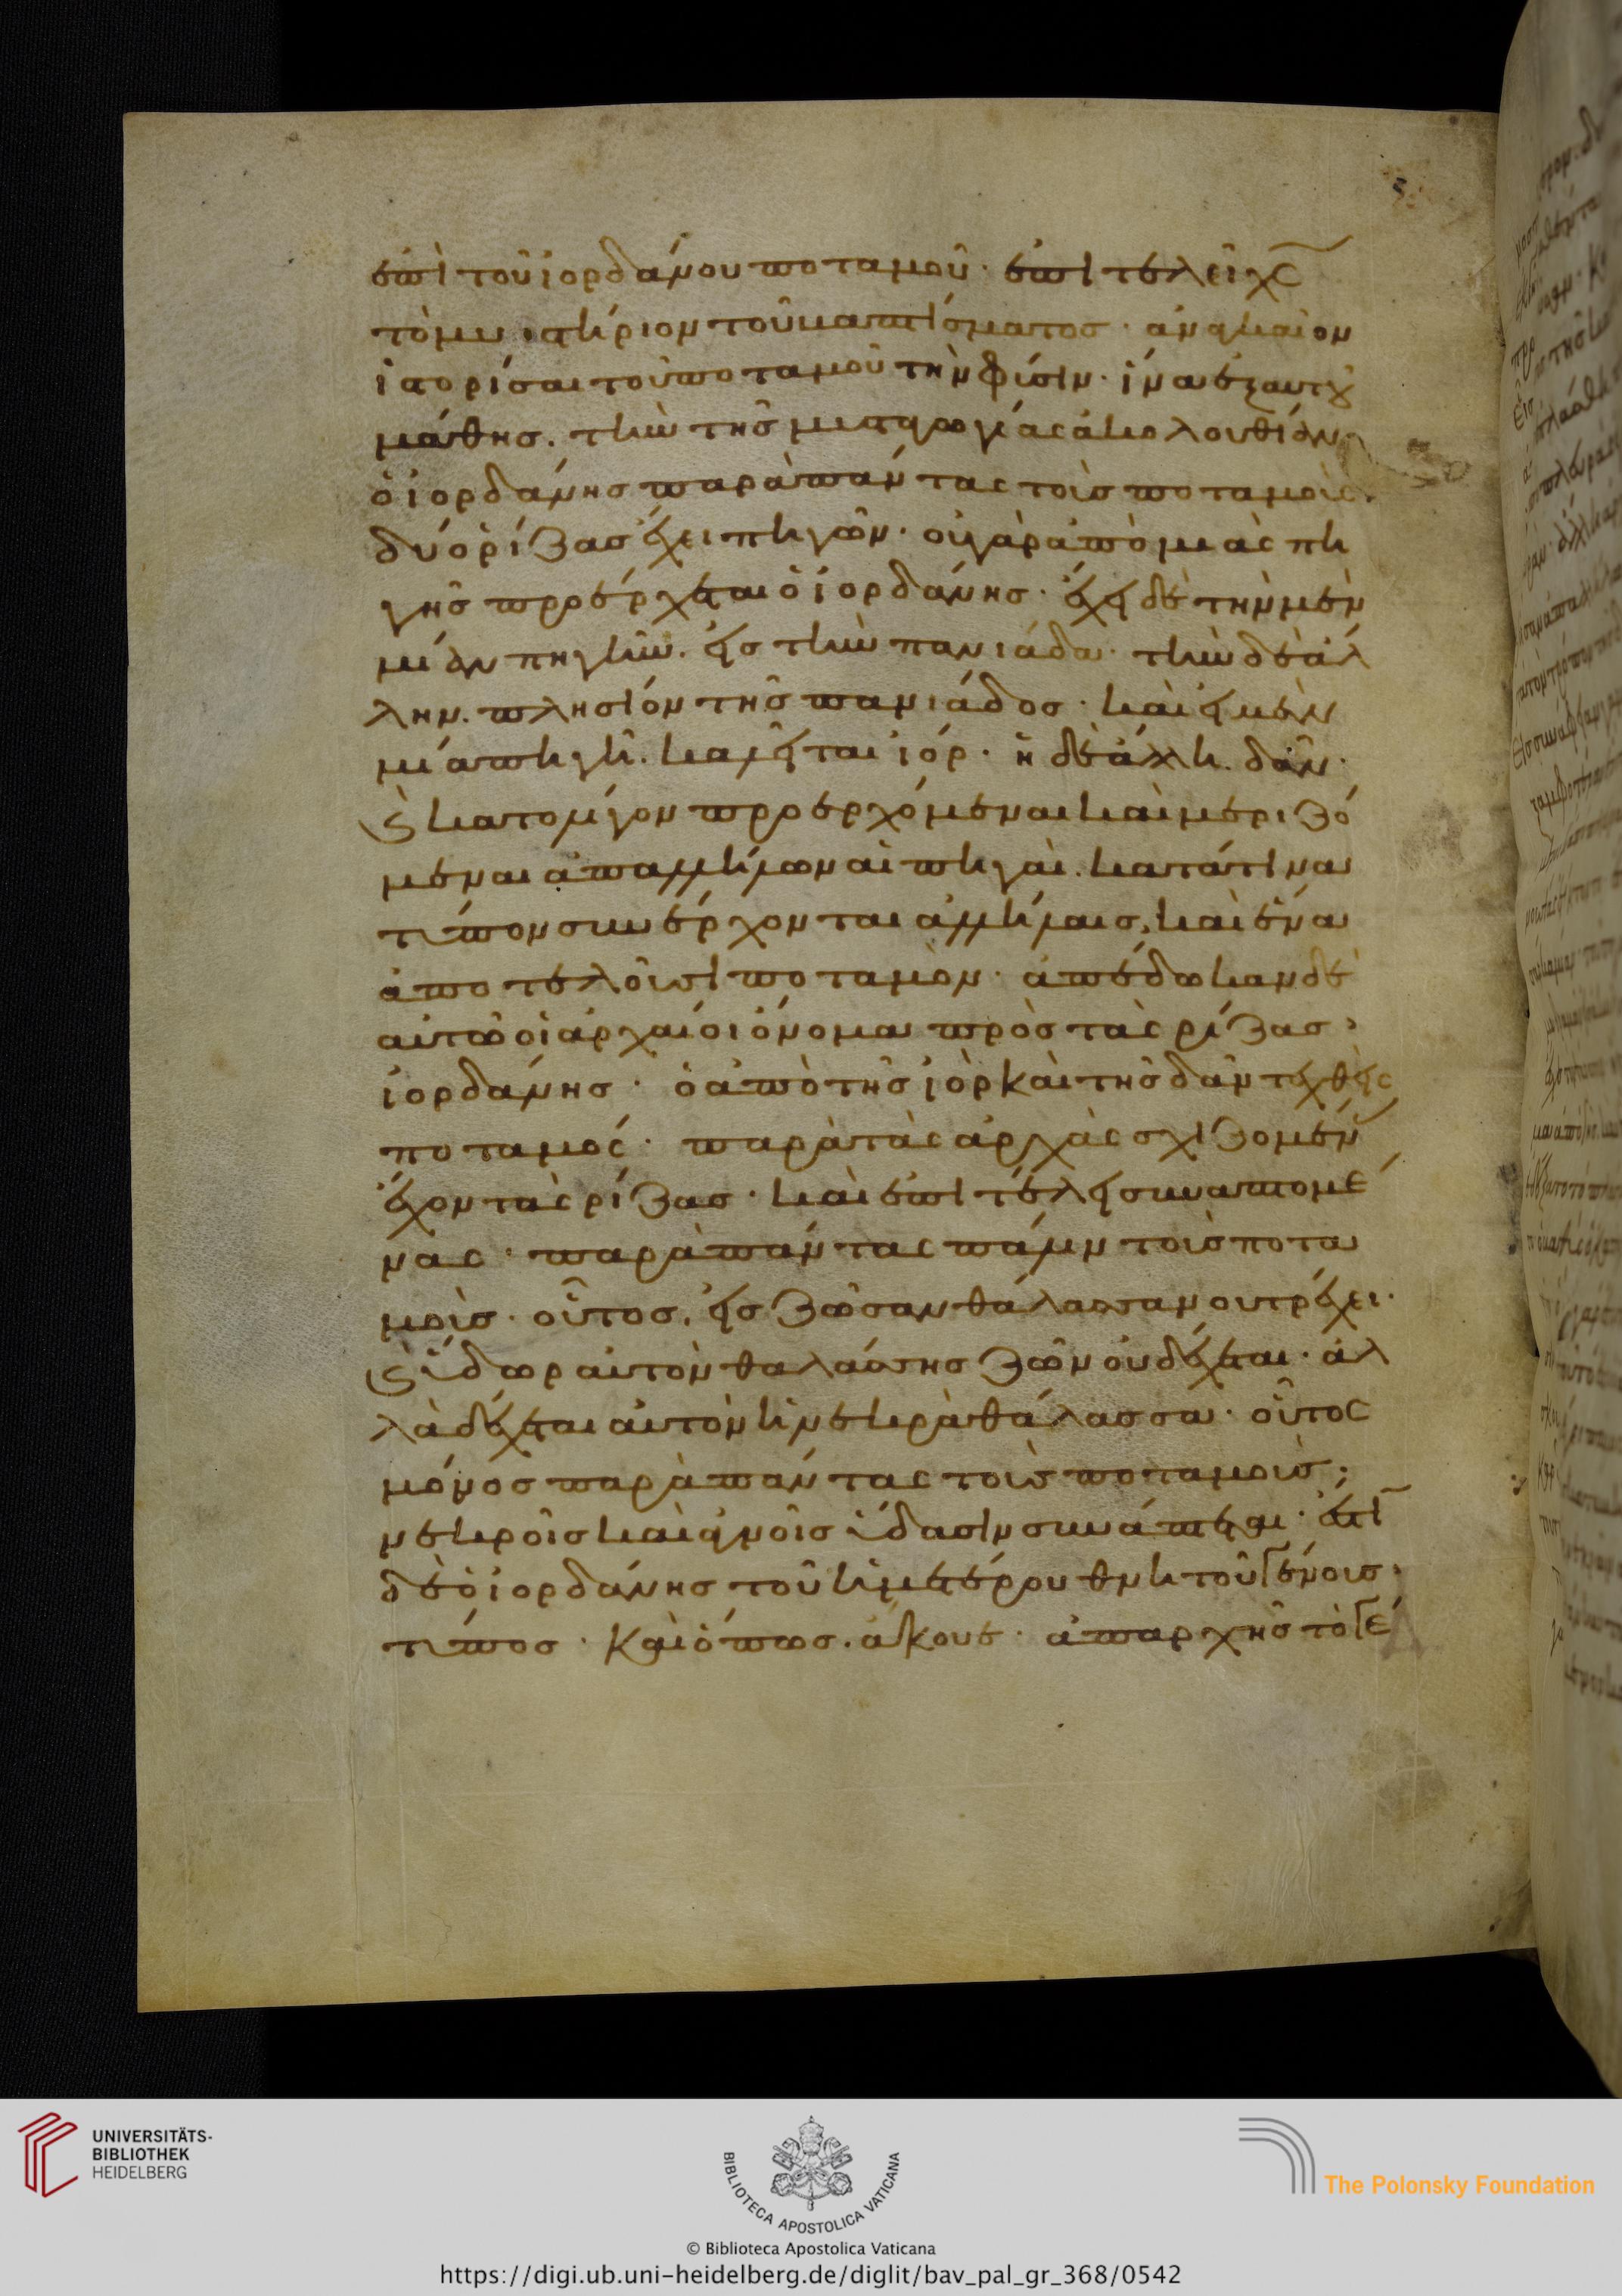 ἐπὶ τοῦ ἰορδάνου ποταμοῦ· ἐπιτελεῖ χς
τὸ μυστήριον τοῦ βαπτίσματος· ἀναγκαῖον
ἱστορίσαι τοῦ ποταμοῦ τὴν φύσιν· ἵνα ἐξ αυτοῦ
μάθης. τὴν τῆς μυσταγωγίας ἀκολουθίαν
ὁ ἰορδάνης παρὰ πάντας τοὺς ποταμοὺς.
δύο ρίζας ἔχει πηγῶν· οὐ γὰρ ἀπὸ μιᾶς πη
γῆς προέρχεται ὁ ἰορδάνης· ἔχει δὲ τὴν μὲν
μίαν πηγὴν. εἰς τὴν πανιάδα· τὴν δὲ ἄλ
λην. πλησίον τῆς πανιάδος· καὶ ἡ μὲν
μία πηγὴ. καλεῖται ἰόρ· ἡ δὲ ἄλλη. δᾶν·
καὶ κατὰ μόνον προερχόμεναι καὶ μεριζό
μεναι ἀπαλλήλων αἱ πηγαὶ. κατά τινα
τύπον συνέρχονται ἀλλήλαις, καὶ ἕνα
ἀποτελοῦσι ποταμὸν· ἀπέδωκαν δὲ
αὐτῶ οἱ ἀρχαῖοι ὄνομα πρὸς τὰς ρίζας·
ἰορδάνης· ὁ ἀπὸ τῆς ἰὸρ καὶ τῆς δᾶν τεχθεὶς
ποταμός· παρὰ τὰς ἀρχὰς σχιζομέν
ἔχον τὰς ρίζας· καὶ ἐπὶ τέλει συναπτομέ
νας· παρὰ πάντας πάλιν τοὺς ποτα
μοὺς· οὗτος, εἰς ζῶσαν θάλασσαν ου τρέχει·
καὶ ὕδωρ αὐτὸν θαλάσσης ζῶν οὐ δέχεται· ἀλ
λὰ δέχεται αὐτὸν ἡ νεκρὰ θάλασσα· οὗτος
μόνος παρὰ πάντας τοὺς ποταμοὺς;
νεκροῖς καὶ κενοῖς ὕδασιν συνάπτεται· ἔστι
δὲ ὁ ἰορδάνης τοῦ ἡμετέρου θνητοῦ γένους·
τύπος· καὶ ὅπως. ἄκουε· ἀπαρχῆς τὸ γέ
UNIVERSITÄTS-
BIBLIOTHEK
HEIDELBERG
BIBLIOTECA APOSTOLICA VATICANA
The Polonsky Foundation
© Biblioteca Apostolica Vaticana
https://digi.ub.uni-heidelberg.de/diglit/bav_pal_gr_368/0542